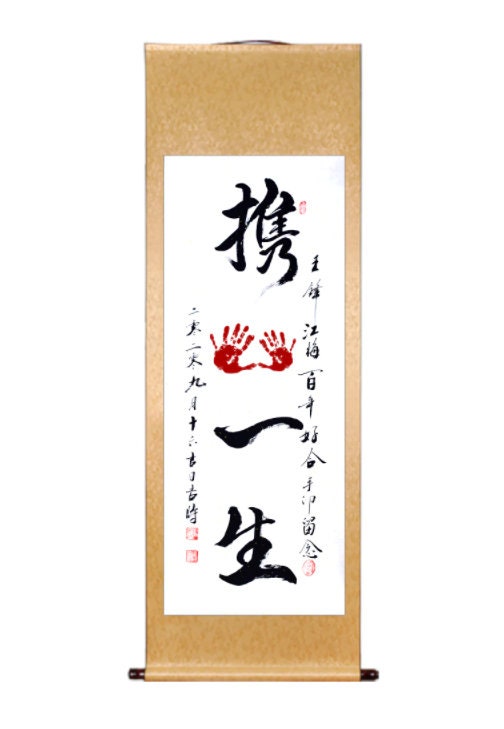 携
一
生
王锋江梅百年好合手印留念
二零二零九月十六吉日吉时